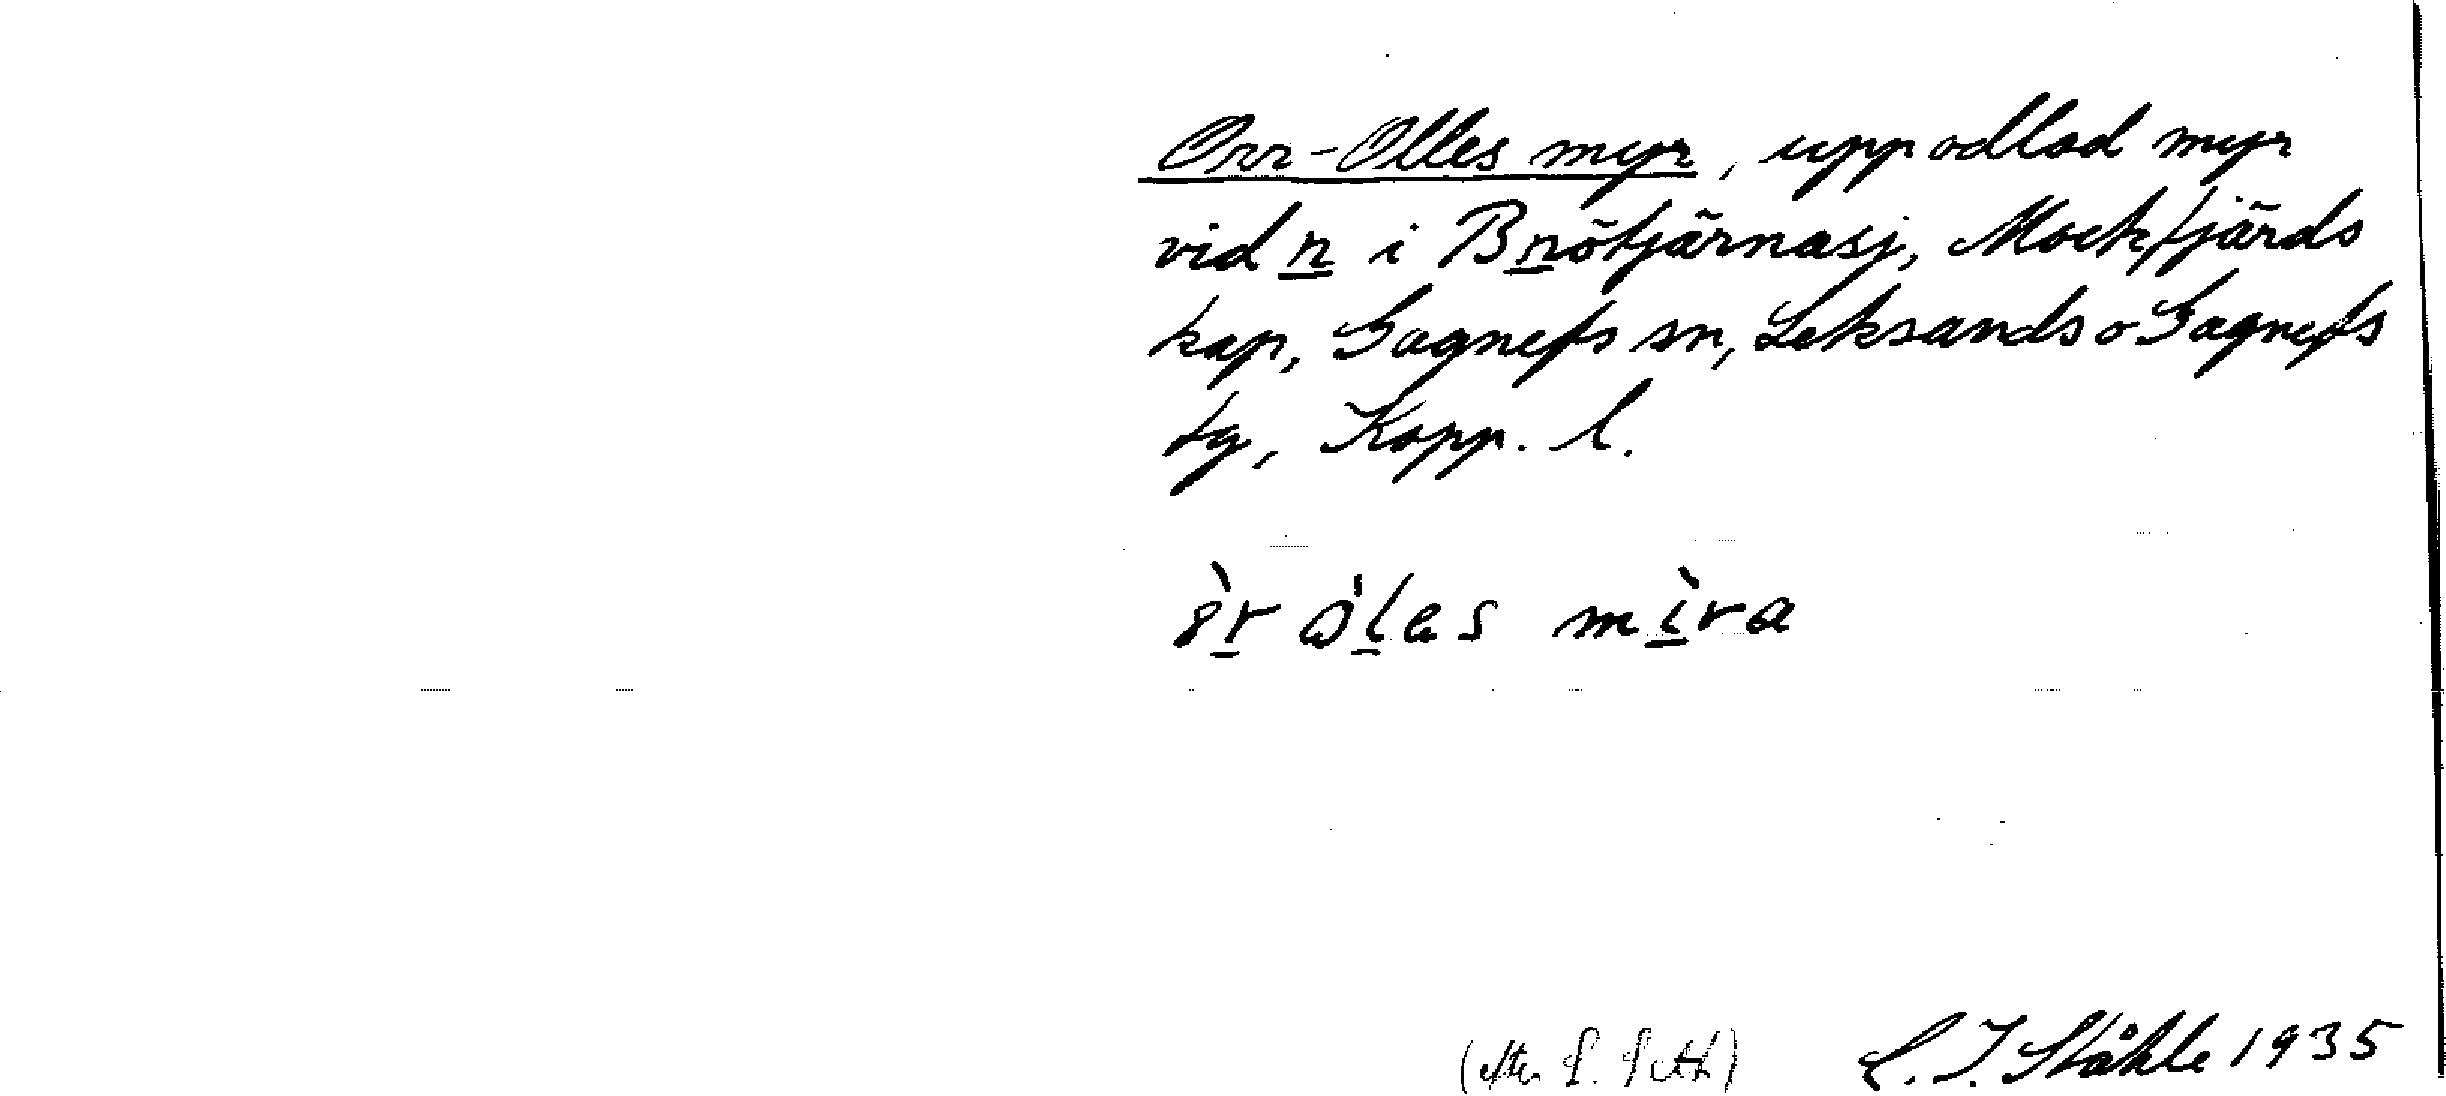 Orr-Olles myr, uppodlad myr
vid n i Bnötjärnasj, Mockfjärds
kap, Gagnefs sn, Leksands o Gagnefs
tg, Kopp. l.
mìra
(efter S.
C. I. Ståhle 1935